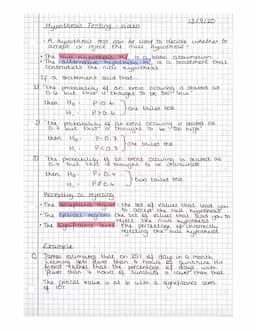 Hypothesis Testing - video
13/9/20
• A hypothesis test can be used to decide whether to
accept or reject the null hypothesis.
• The null hypothesis H₀ is a basic assumption
• The alternative hypothesis H₁ is a statement that
contradicts the null hypothesis
If a statement said that
1) 'the probability of an event occuring is stated as
0.6 but that is thought to be too low'
then H₀ : P = 0.6
H₁ : P > 0.6
one tailed test
2) 'the probability of an event occuring is stated as
0.3 but that is thought to be too high'
then H₀ : P = 0.3
H₁ : P < 0.3
one tailed test
3) the probability of an event occuring is stated as
0.4 but this is thought to be
then H₀ : P = 0.4
H₁ : P ≠ 0.4
two tailed test
Accepting or rejecting
• The acceptance region - the set of values that lead you
to accept the null hypothesis
• The critical region - the set of values that lead you to
reject the null hypothesis
• The significance level - the percentage of incorrectly
rejecting the null hypothesis
Example
Q James estimates that on 25% of days in a month
get fewer than 4 hours of sunshine. His
friend thinks that the percentage of days with
fewer than 4 hours of sunshine is lower than that
The critical value is at 2 with a significance level
of 10%